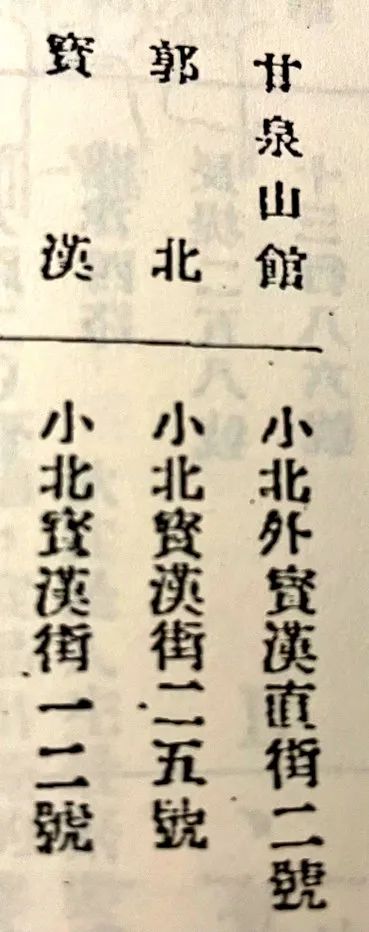 甘泉山館
小北外寳漢直街二號
郭北
小北寳漢街二五號
寳漢
小北寳漢街一二號